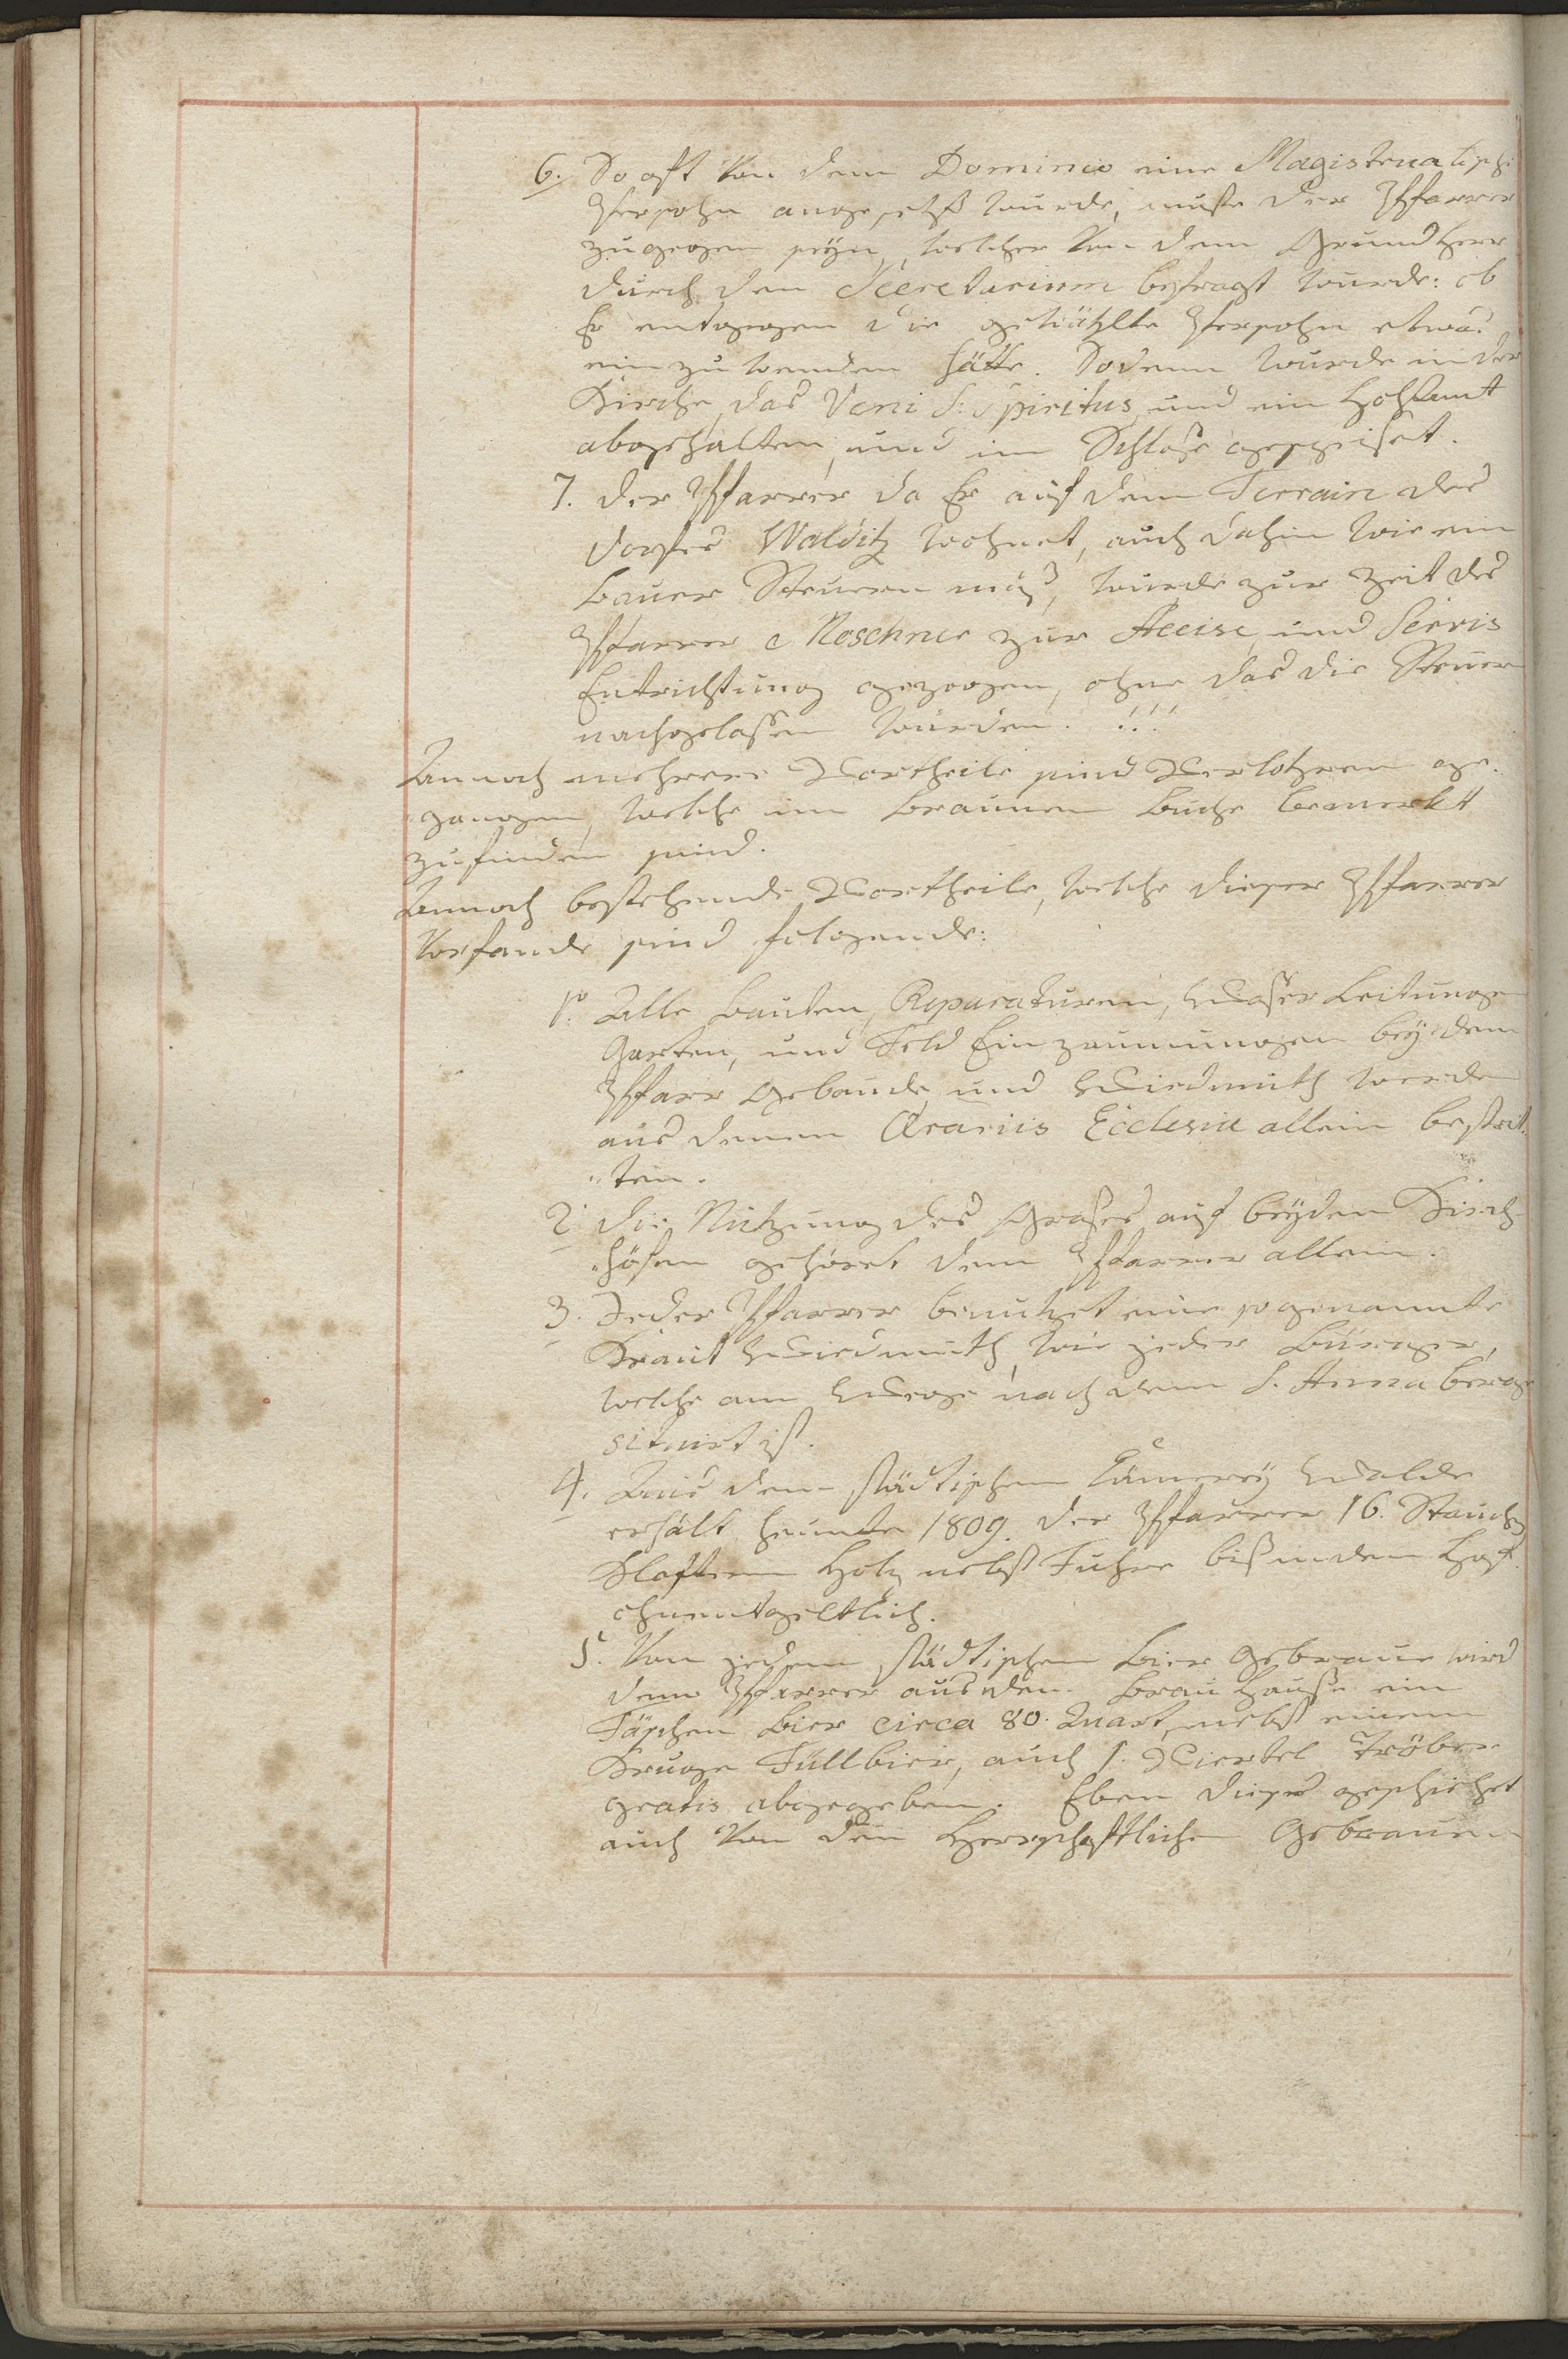 6. So oft von dem Dominio eine Magistratualische
Persohn angesetzt wurde, muste der Pfarrer
zugegen seyn, welcher von dem Grundherr
durch den Secretarium befragt wurde: ob
Er entgegen die gewählte Persohn etwas
einzuwenden hätte. Sodann wurde in der
Kirche das Veni S: Spiritus, und ein Hohamt
abgehalten, und im Schloße gespeiset.
7. Der Pfarrer da Er auf dem Terrain des
Dorfes Walditz wohnet, auch dahin wie ein
Bauer Steuern muß, wurde zur Zeit des
Pfarrer Neschner zur Accise, und Servis
Entrichtung gezogen, ohne das die Steuern
nachgelaßen wurden. !!!
Annoch mehrere Vortheile sind verlohren ge-
gangen, welche im braunen Buche bemerkt
zufinden sind.
Annoch bestehende Vortheile, welche dieser Pfarrer
vorfande sind folgende:
1o. Alle Bauten, Reparaturen, Waßer Leitungen
Garten, und Feld Einzäunungen bey dem
Pfarr Gebäude und Wiedmuth werden
aus denen Ærariis Ecclesiæ allein bestrit-
"ten.
2. Die Nutzung des Graßes auf beyden Kirch-
"höfen gehöret dem Pfarrer allein.
3. Jeder Pfarrer benutzet eine sogenannte
Kraut Wiedmuth, wie jeder Bürger,
welche am Wege nach dem S. Anna Berge
situirt ist.
4. Aus dem städtischen Cämerey Walde
erhält heunte 1809. der Pfarrer 16. Stauch
Klaftern Holz nebst Fuhre bis in den Hof
ohnentgeltlich.
5. Von jedem städtischen Bier Gebräue wird
dem Pfarrer aus dem Brau Hauße ein
Fäschen Bier circa 80. Quart, nebst einem
Kruge Füllbier, auch 1. Viertel Tröber
gratis abgegeben. Eben dieses geschiehet
auch von den Herrschaftlichen Gebräuen